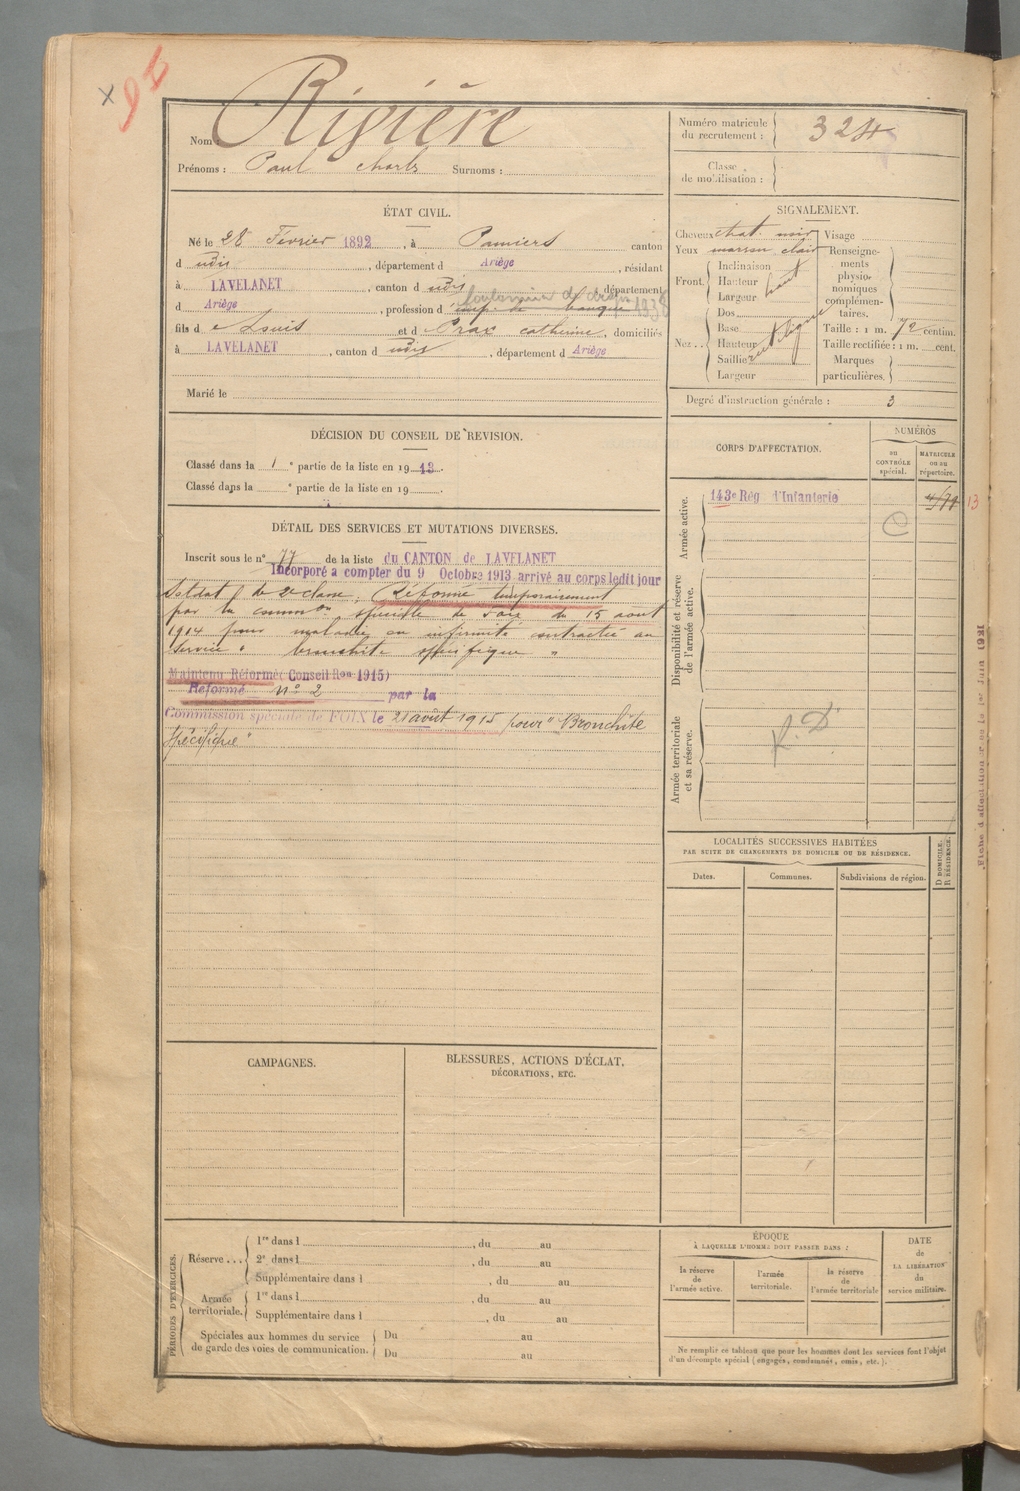 95
x
Nom : Rivière
Prénoms : Paul Charles Surnoms :
Numéro matricule du recrutement : 324
Classe de mobilisation :
ÉTAT CIVIL.
Né le 28 Février 1892, à Pamiers canton
d udis, département d Ariège, résidant
à LAVELANET, canton d udis, département
d Ariège, profession d emp. de banque 1938
fils d e Louis et d Prax Catherine, domiciliés
à LAVELANET, canton d udis, département d Ariège
Marié le
SIGNALEMENT.
Cheveux chat. noir
Yeux marron clair
Front. Inclinaison
Hauteur haut
Largeur
Nez.. Dos
Base
Hauteur
Saillie rectiligne
Largeur
Visage
Renseignements physionomiques complémentaires.
Taille : 1 m. 72 centim.
Taille rectifiée : 1 m. cent.
Marques particulières.
Degré d'instruction générale : 3
DÉCISION DU CONSEIL DE REVISION.
Classé dans la 1e partie de la liste en 1913.
Classé dans la e partie de la liste en 19
CORPS D'AFFECTATION.
NUMÉROS
au CONTRÔLE spécial.
MATRICULE ou au répertoire.
Armée active.
143e Rég d'Infanterie
13
Disponibilité et réserve de l'armée active.
Armée territoriale et sa réserve.
R. D
DÉTAIL DES SERVICES ET MUTATIONS DIVERSES.
Inscrit sous le n° 77 de la liste du CANTON de LAVELANET
Incorporé a compter du 9 Octobre 1913 arrivé au corps ledit jour
Soldat de 2e classe. Réformé temporairement
par la common spéciale de Foix du 15 août
1914 pour maladie ou infirmité contractée au
service " bronchite spécifique "
Maintenu Réformé (Conseil Ron 1915)
Réformé n° 2 par la
Commission spéciale de FOIX le 21 août 1915 pour "Bronchite
spécifique"
LOCALITÉS SUCCESSIVES HABITÉES
PAR SUITE DE CHANGEMENTS DE DOMICILE OU DE RÉSIDENCE.
Dates.
Communes.
Subdivisions de région.
D. DOMICILE. R. RÉSIDENCE.
CAMPAGNES.
BLESSURES, ACTIONS D'ÉCLAT,
DÉCORATIONS, ETC.
PÉRIODES D'EXERCICES.
Réserve...
1re dans l , du au
2e dans l , du au
Supplémentaire dans l , du au
Armée territoriale.
1re dans l , du au
Supplémentaire dans l , du au
Spéciales aux hommes du service de garde des voies de communication.
Du au
Du au
ÉPOQUE
À LAQUELLE L'HOMME DOIT PASSER DANS :
la réserve de l'armée active.
l'armée territoriale.
la réserve de l'armée territoriale
DATE de LA LIBÉRATION du service militaire.
Ne remplir ce tableau que pour les hommes dont les services font l'objet
d'un décompte spécial (engagés, condamnés, omis, etc.).